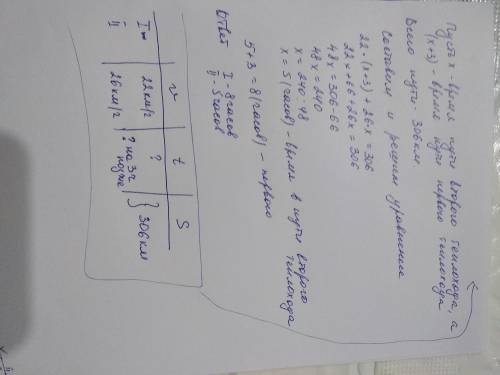 Пусть x - время пути второго теплохода, а
(x+3) - время пути первого теплохода
Всего пути - 306 км.
Составим и решим уравнение
22·(x+3) + 26·x = 306
22x+66+26x = 306
48x = 306-66
48x = 240
x = 240:48
x = 5 (часов) - время в пути второго
теплохода
5+3 = 8 (часов) - первого
Ответ I - 8 часов
II - 5 часов
v t S
I 22км/г ?
II 26км/г ? на 3г позже } 306 км